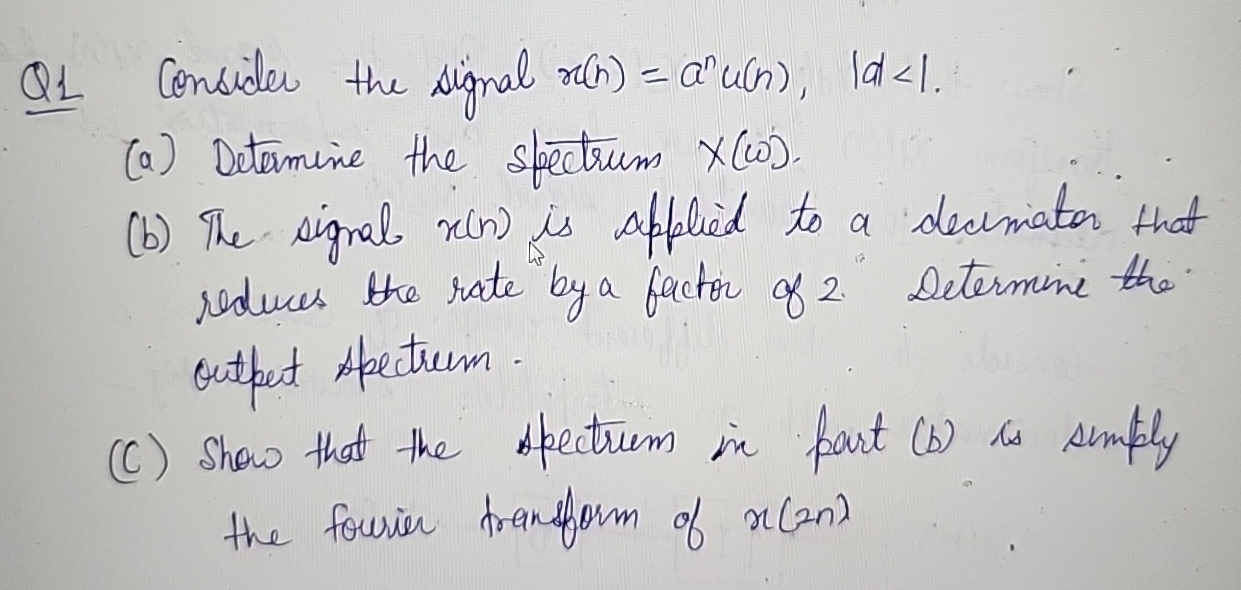 Q1 Consider the signal x(n) = aⁿu(n), |a|<1.
(a) Determine the spectrum X(ω).
(b) The signal x(n) is applied to a decimator that
reduces the rate by a factor of 2. Determine the
output spectrum.
(C) Show that the spectrum in part (b) is simply
the fourier transform of x(2n)